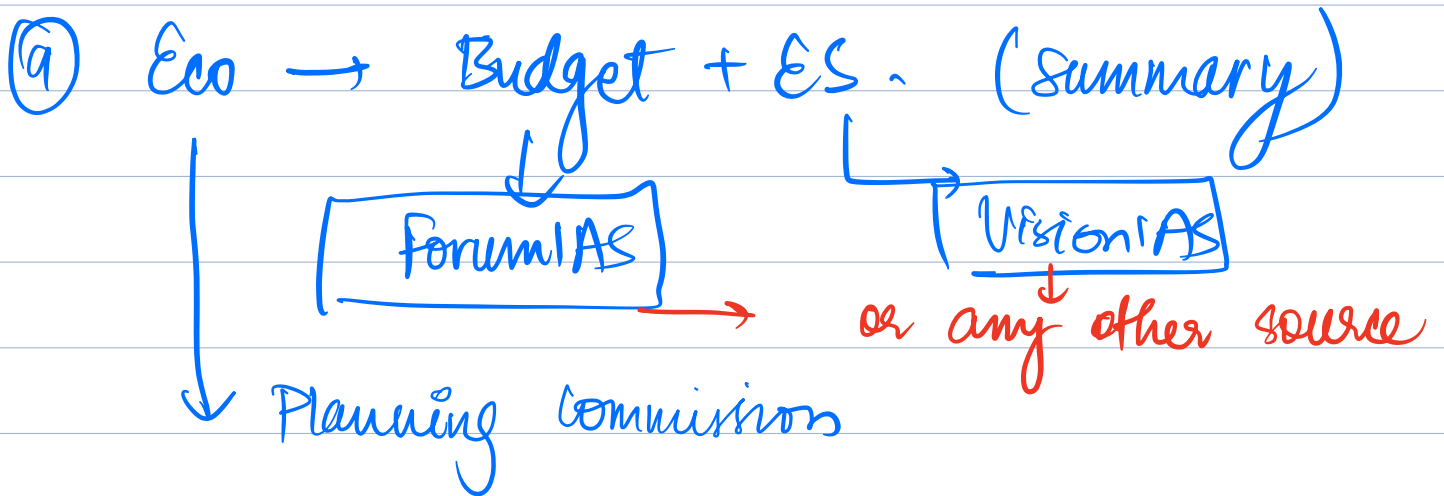 (a) Eco → Budget + ES. (Summary)
ForumIAS VisionIAS
→ or any other source
Planning Commission